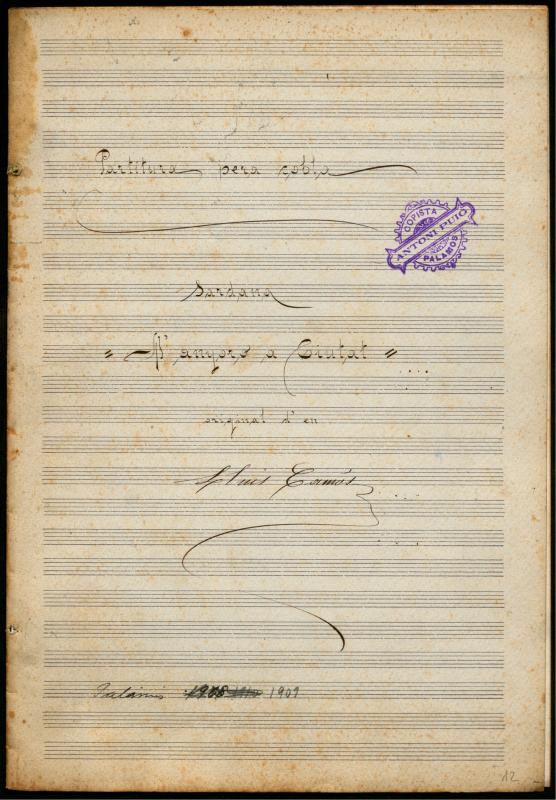 Partitura pera cobla
COPISTA
ANTONI PUIG
PALAMÓS
Sardana
" M' anyoro a Ciutat "
original d' en
Lluis Camós
Palamós 1908 1909
12